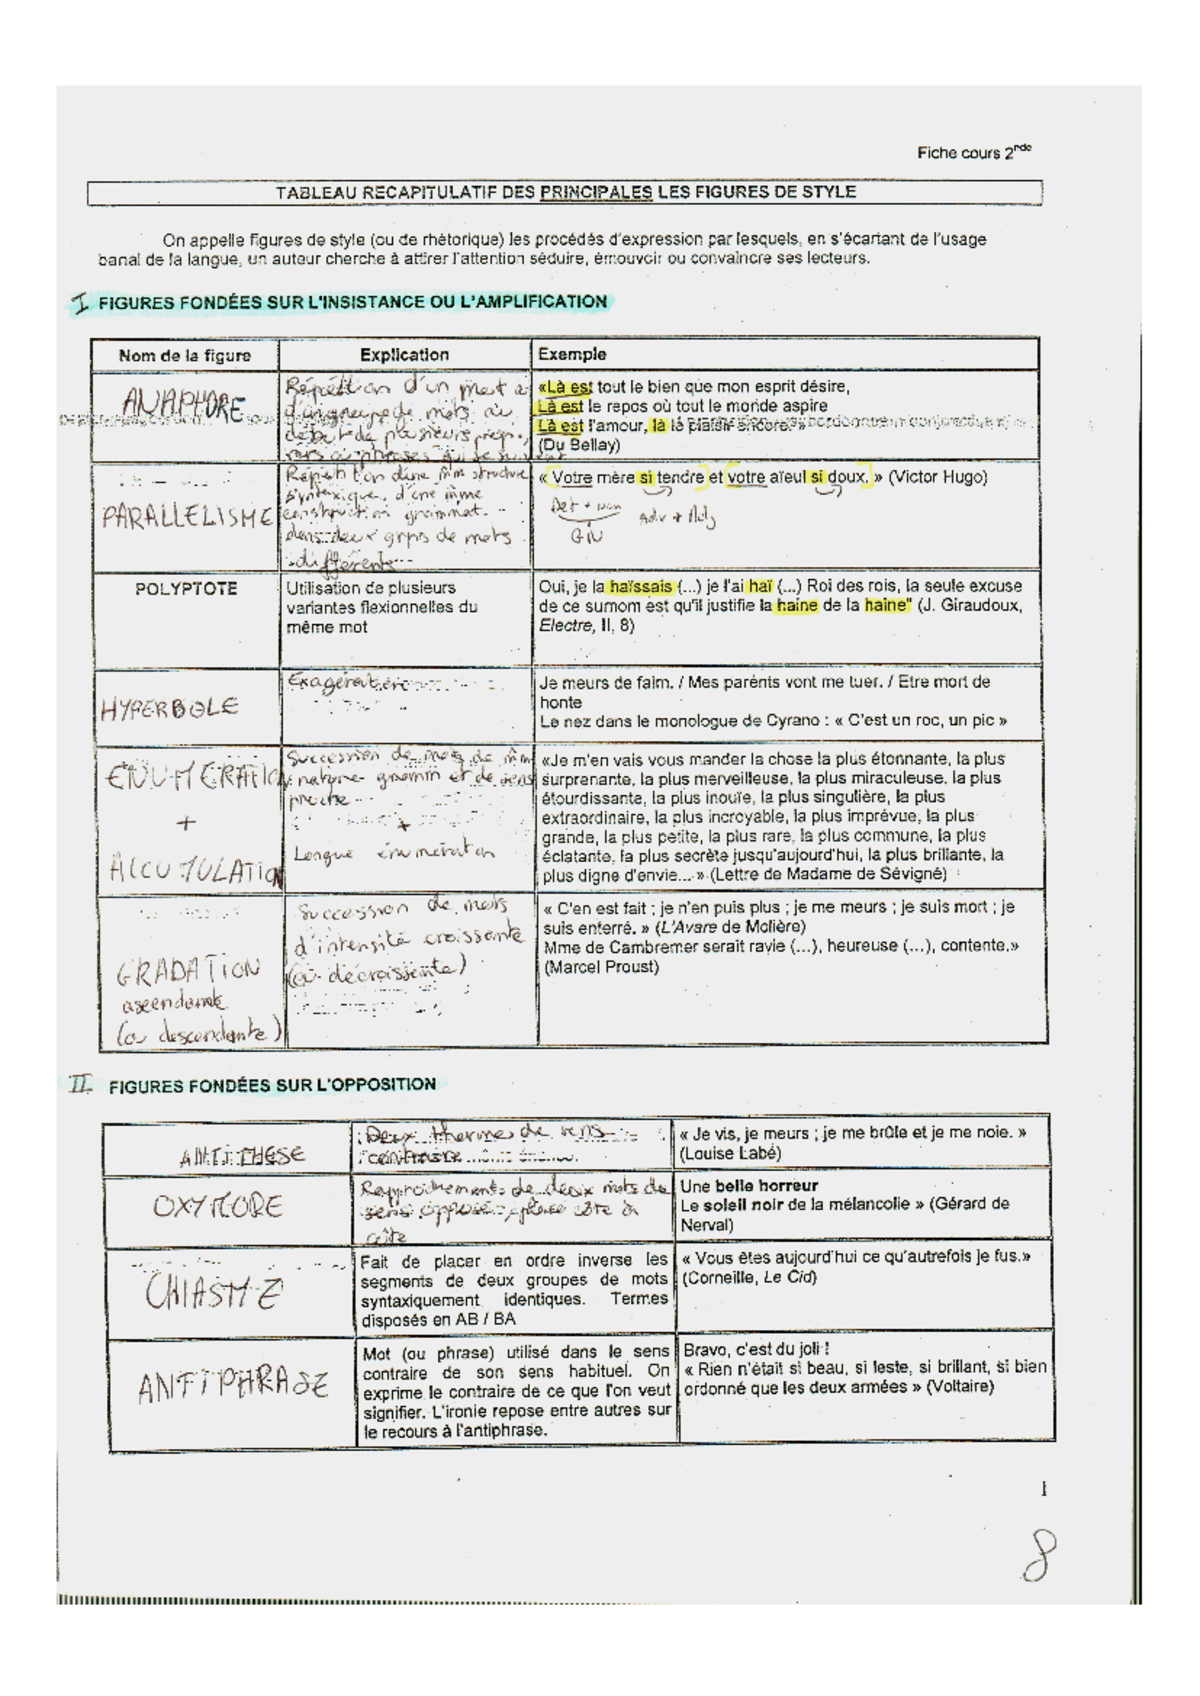 Fiche cours 2nde
TABLEAU RECAPITULATIF DES PRINCIPALES LES FIGURES DE STYLE
On appelle figures de style (ou de rhétorique) les procédés d'expression par lesquels, en s'écartant de l'usage
banal de la langue, un auteur cherche à attirer l'attention séduire, émouvoir ou convaincre ses lecteurs.
I FIGURES FONDÉES SUR L'INSISTANCE OU L'AMPLIFICATION
Nom de la figure Explication Exemple
ANAPHORE
Répétition d'un mot
d'un groupe de mots au
début de plusieurs
«Là est tout le bien que mon esprit désire,
Là est le repos où tout le monde aspire
Là est l'amour, là le plaisir encore. »
(Du Bellay)
PARALLELISME
Répétition d'une mm structure
syntaxique, d'une même
construction grammat.
dans deux grps de mots
différents
« Votre mère si tendre et votre aïeul si doux. » (Victor Hugo)
Det + nom Adv + Adj
GN
POLYPTOTE
Utilisation de plusieurs
variantes flexionnelles du
même mot
Oui, je la haïssais (...) je l'ai haï (...) Roi des rois, la seule excuse
de ce surnom est qu'il justifie la haine de la haine" (J. Giraudoux,
Electre, II, 8)
HYPERBOLE
Exagération
Je meurs de faim. / Mes parents vont me tuer. / Etre mort de
honte
Le nez dans le monologue de Cyrano : « C'est un roc, un pic »
ENUMERATION
+
ACCUMULATION
Succession de mots de mm
nature gramm et de sens
proche
+
Longue énumération
«Je m'en vais vous mander la chose la plus étonnante, la plus
surprenante, la plus merveilleuse, la plus miraculeuse, la plus
étourdissante, la plus inouïe, la plus singulière, la plus
extraordinaire, la plus incroyable, la plus imprévue, la plus
grande, la plus petite, la plus rare, la plus commune, la plus
éclatante, la plus secrète jusqu'aujourd'hui, la plus brillante, la
plus digne d'envie... » (Lettre de Madame de Sévigné)
GRADATION
ascendante
(ou descendante)
Succession de mots
d'intensité croissante
(ou décroissante)
« C'en est fait ; je n'en puis plus ; je me meurs ; je suis mort ; je
suis enterré. » (L'Avare de Molière)
Mme de Cambremer serait ravie (...), heureuse (...), contente.»
(Marcel Proust)
II FIGURES FONDÉES SUR L'OPPOSITION
ANTITHESE
Deux thermes de sens
contraire
« Je vis, je meurs ; je me brûle et je me noie. »
(Louise Labé)
OXYMORE
Rapprochement de deux mots de
sens opposé, placé côte à
côte
Une belle horreur
Le soleil noir de la mélancolie » (Gérard de
Nerval)
CHIASME
Fait de placer en ordre inverse les
segments de deux groupes de mots
syntaxiquement identiques. Termes
disposés en AB / BA
« Vous êtes aujourd'hui ce qu'autrefois je fus.»
(Corneille, Le Cid)
ANTIPHRASE
Mot (ou phrase) utilisé dans le sens
contraire de son sens habituel. On
exprime le contraire de ce que l'on veut
signifier. L'ironie repose entre autres sur
le recours à l'antiphrase.
Bravo, c'est du joli !
« Rien n'était si beau, si leste, si brillant, si bien
ordonné que les deux armées » (Voltaire)
1
8